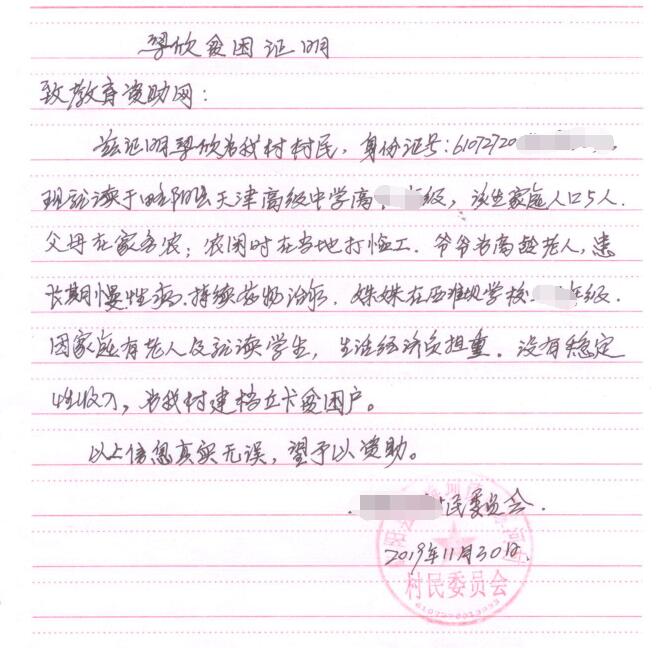 翠欣贫困证明
致教育资助网:
兹证明翠欣为我村村民,身份证号:61072720
现就读于略阳县天津高级中学高 年级,该生家庭人口5人.
父母在家务农,农闲时在当地打临工.爷爷为高龄老人,患
长期慢性病.持续药物治疗.妹妹在西淮坝学校 年级.
因家庭有老人及就读学生,生活经济负担重.没有稳定
性收入,为我村建档立卡贫困户。
以上信息真实无误,望予以资助。
村民委员会.
2019年11月30日.
村民委员会